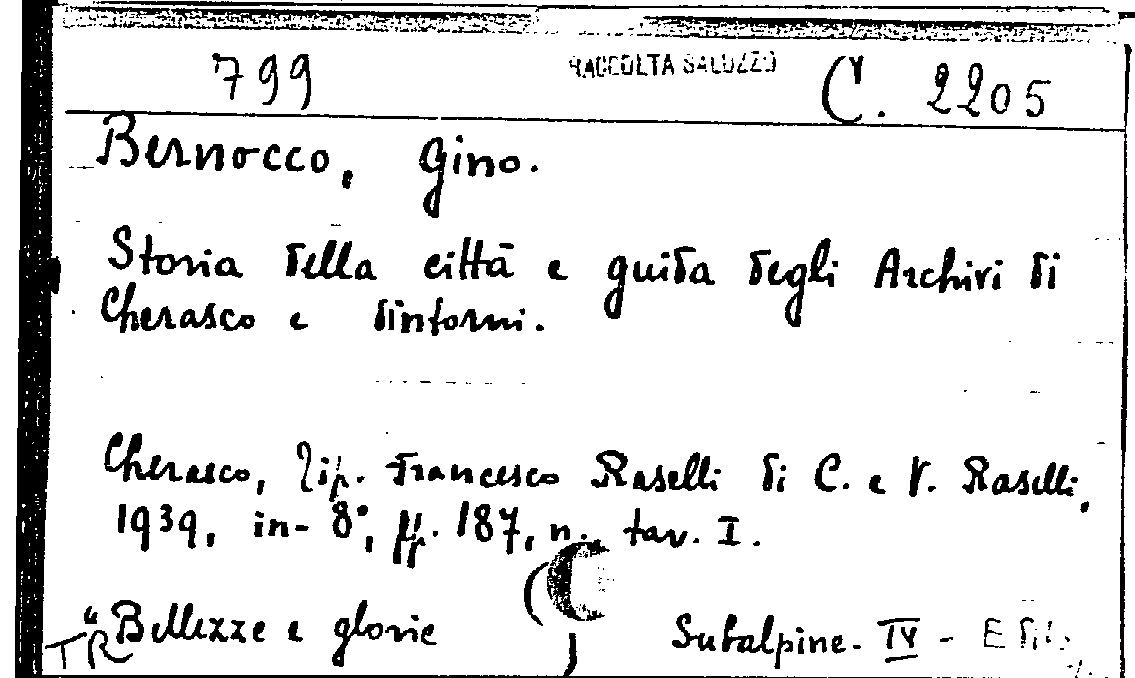 799 RACCOLTA SALUZZO C. 2205
Bernocco, Gino.
Storia della città e guida degli Archivi di
Cherasco e dintorni.
Cherasco, Tip. Francesco Raselli di C. e V. Raselli,
1939, in-8°, pp. 187, n., tav. I.
"Bellezze e glorie Subalpine - IV -
TR